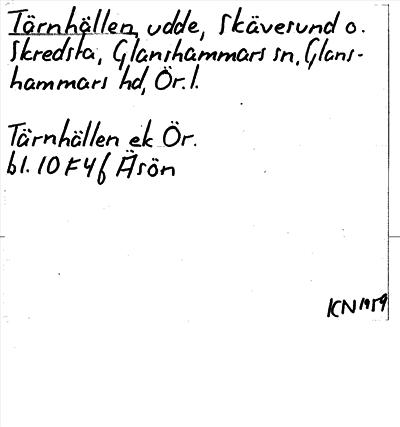 Tärnhällen, udde, Skäversund o.
Skredsta, Glanshammars sn, Glans-
hammars hd, Ör. l.
Tärnhällen ek Ör.
bl. 10 F 4 f Äsön
KN 1959